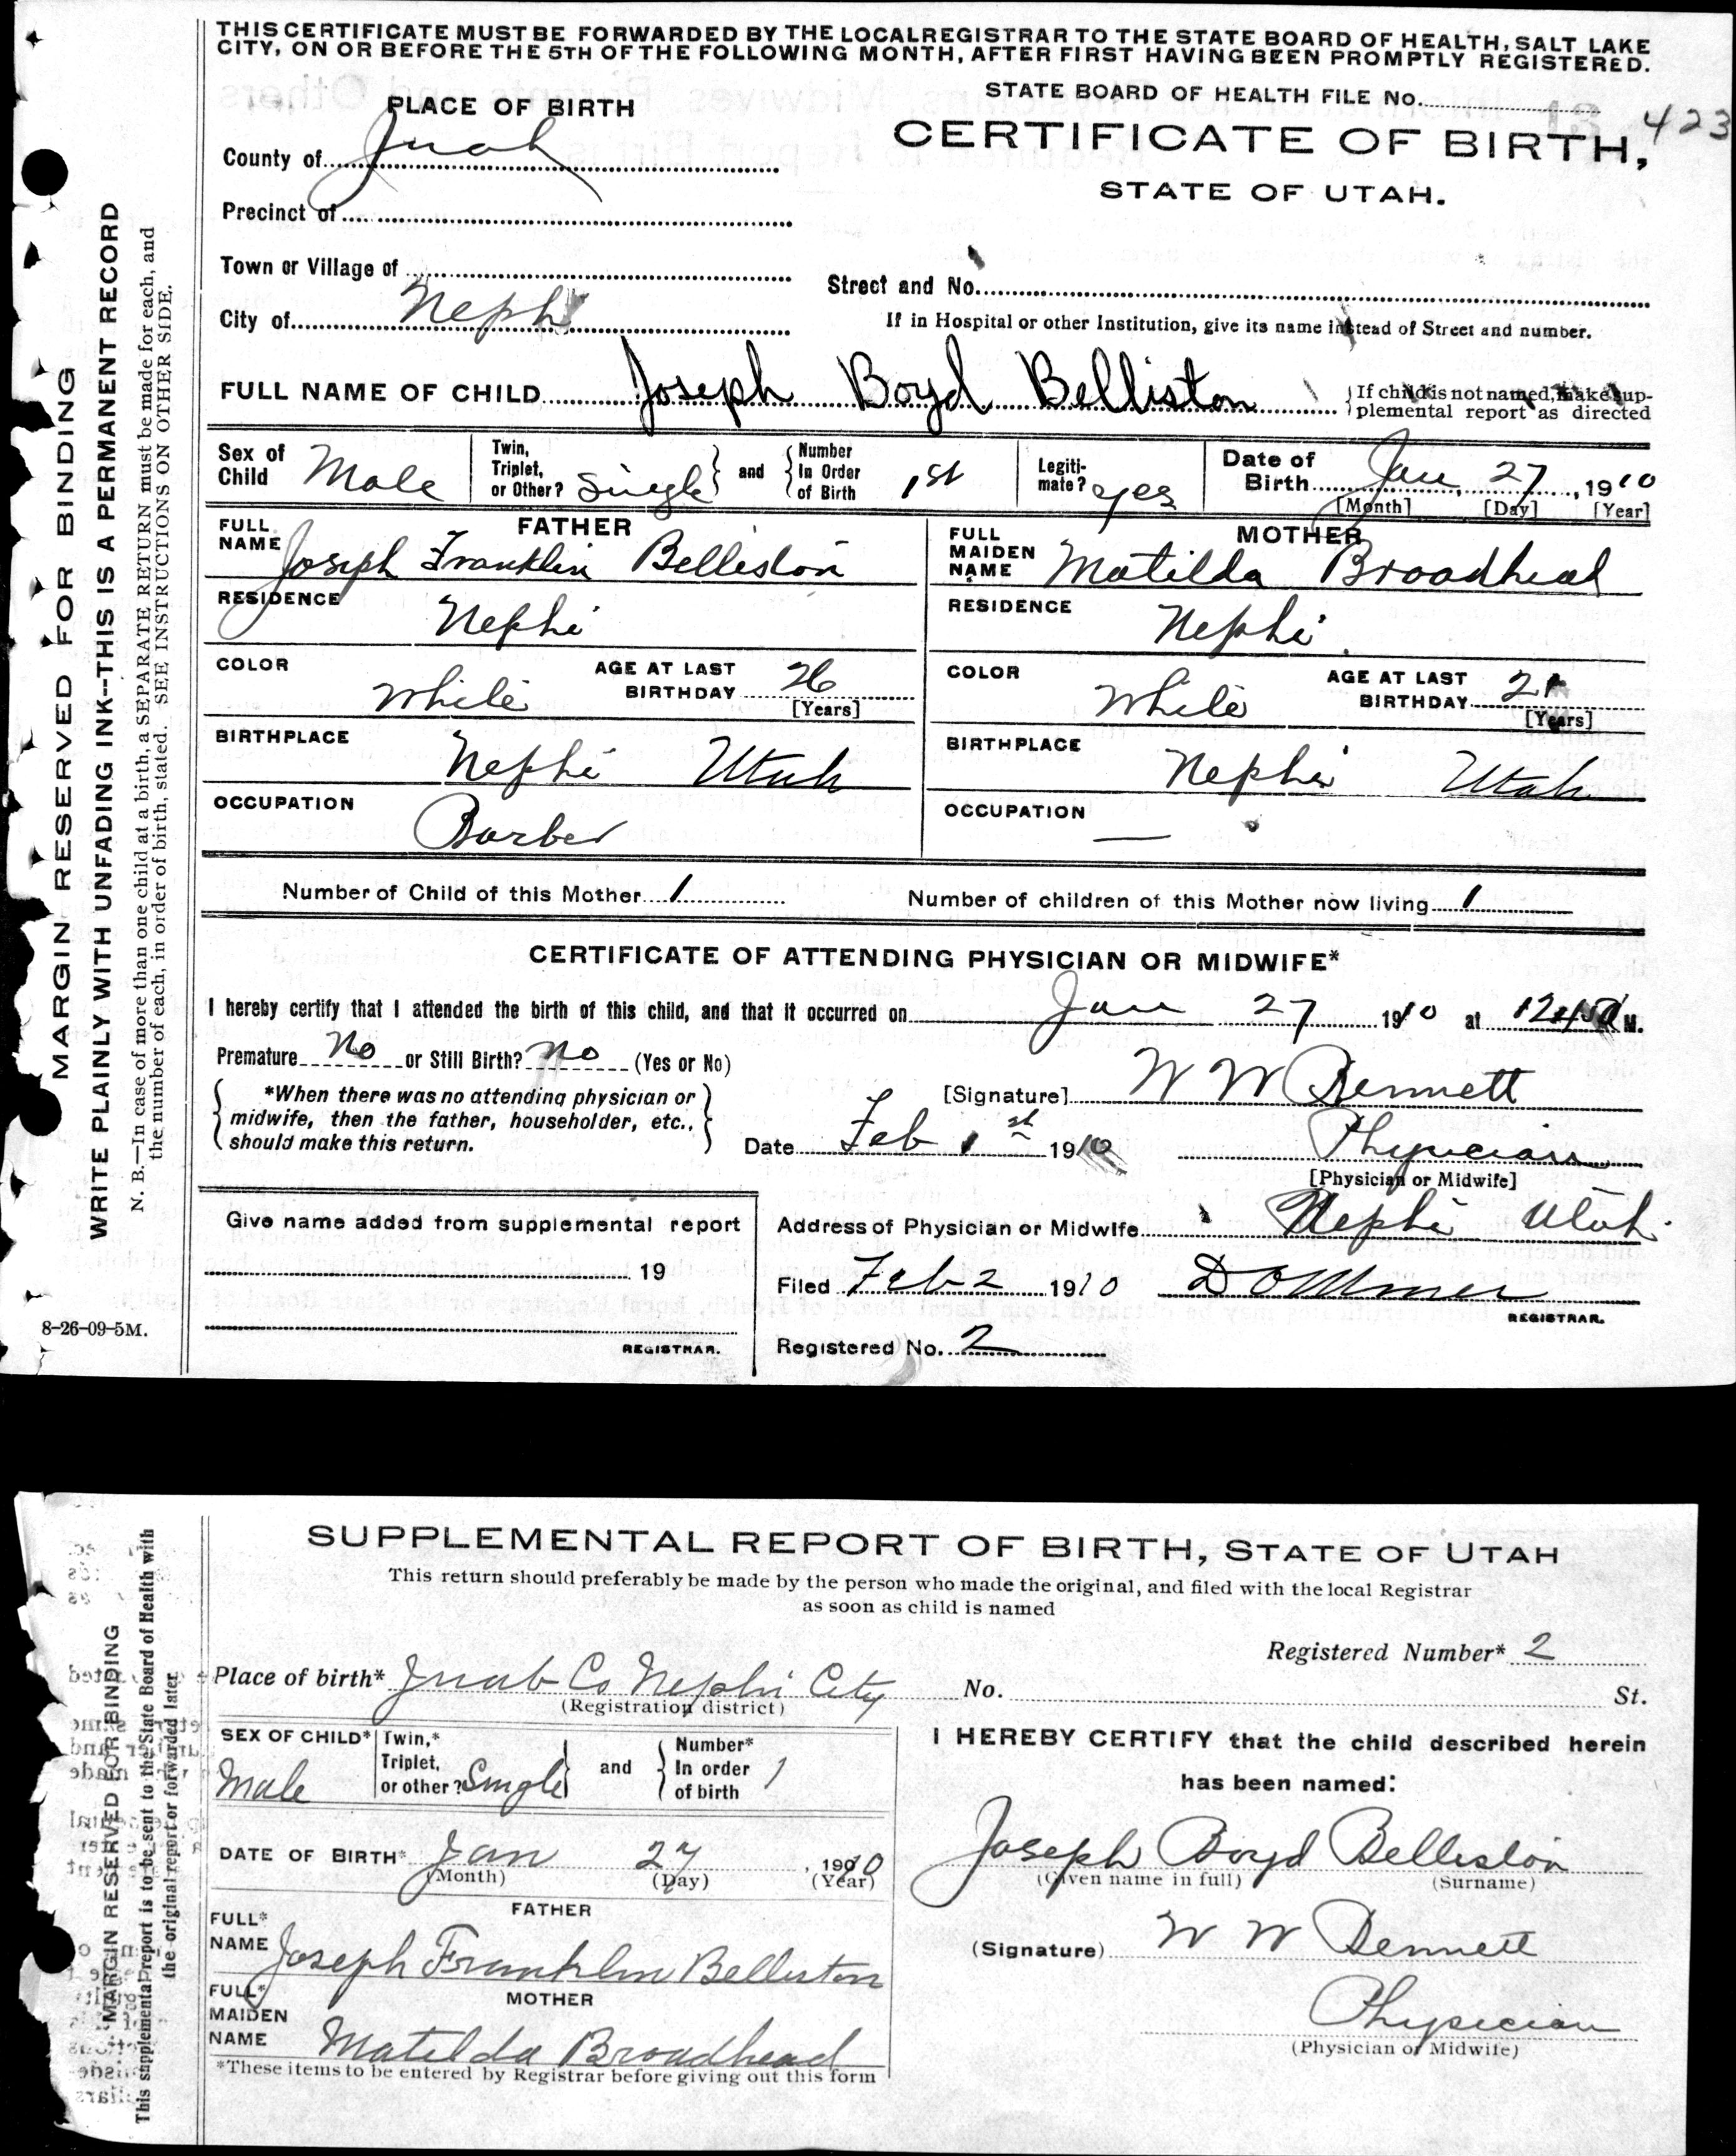 THIS CERTIFICATE MUST BE FORWARDED BY THE LOCAL REGISTRAR TO THE STATE BOARD OF HEALTH, SALT LAKE
CITY, ON OR BEFORE THE 5TH OF THE FOLLOWING MONTH, AFTER FIRST HAVING BEEN PROMPTLY REGISTERED.
PLACE OF BIRTH
STATE BOARD OF HEALTH FILE No. 423
County of Juab
CERTIFICATE OF BIRTH,
STATE OF UTAH.
Precinct of
Town or Village of
Street and No.
City of Nephi
If in Hospital or other Institution, give its name instead of Street and number.
FULL NAME OF CHILD Joseph Boyd Belliston
If child is not named, make sup-
plemental report as directed
Sex of Child Male
Twin, Triplet, or Other? Single and Number In Order of Birth 1st
Legiti-mate? yes
Date of Birth Jan. 27, 1910
[Month] [Day] [Year]
FATHER
FULL NAME Joseph Franklin Belliston
RESIDENCE Nephi
COLOR White
AGE AT LAST BIRTHDAY 26
[Years]
BIRTHPLACE Nephi Utah
OCCUPATION Barber
MOTHER
FULL MAIDEN NAME Matilda Broadhead
RESIDENCE Nephi
COLOR White
AGE AT LAST BIRTHDAY 21
[Years]
BIRTHPLACE Nephi Utah
OCCUPATION —
Number of Child of this Mother 1
Number of children of this Mother now living 1
CERTIFICATE OF ATTENDING PHYSICIAN OR MIDWIFE*
I hereby certify that I attended the birth of this child, and that it occurred on Jan 27 1910 at M.
Premature No or Still Birth? No (Yes or No)
*When there was no attending physician or
midwife, then the father, householder, etc.,
should make this return.
[Signature] W W Bennett
Date Feb 1st 1910
Physician
[Physician or Midwife]
Give name added from supplemental report
19
REGISTRAR.
Address of Physician or Midwife Nephi Utah.
Filed Feb 2 1910
REGISTRAR.
Registered No. 2
MARGIN RESERVED FOR BINDING
WRITE PLAINLY WITH UNFADING INK--THIS IS A PERMANENT RECORD
N. B.—In case of more than one child at a birth, a SEPARATE RETURN must be made for each, and
the number of each, in order of birth, stated. SEE INSTRUCTIONS ON OTHER SIDE.
8-26-09-5M.
SUPPLEMENTAL REPORT OF BIRTH, STATE OF UTAH
This return should preferably be made by the person who made the original, and filed with the local Registrar
as soon as child is named
Registered Number* 2
Place of birth* Juab Co Nephi City No. St.
(Registration district)
SEX OF CHILD* Male
Twin,* Triplet, or other? Single and Number* In order of birth 1
DATE OF BIRTH* Jan 27, 1910
(Month) (Day) (Year)
FATHER
FULL* NAME Joseph Franklin Belliston
MOTHER
FULL* MAIDEN NAME Matilda Broadhead
*These items to be entered by Registrar before giving out this form
I HEREBY CERTIFY that the child described herein
has been named:
Joseph Boyd Belliston
(Given name in full) (Surname)
(Signature) W W Bennett
Physician
(Physician or Midwife)
MARGIN RESERVED FOR BINDING
This supplemental report is to be sent to the State Board of Health with
the original report or forwarded later.